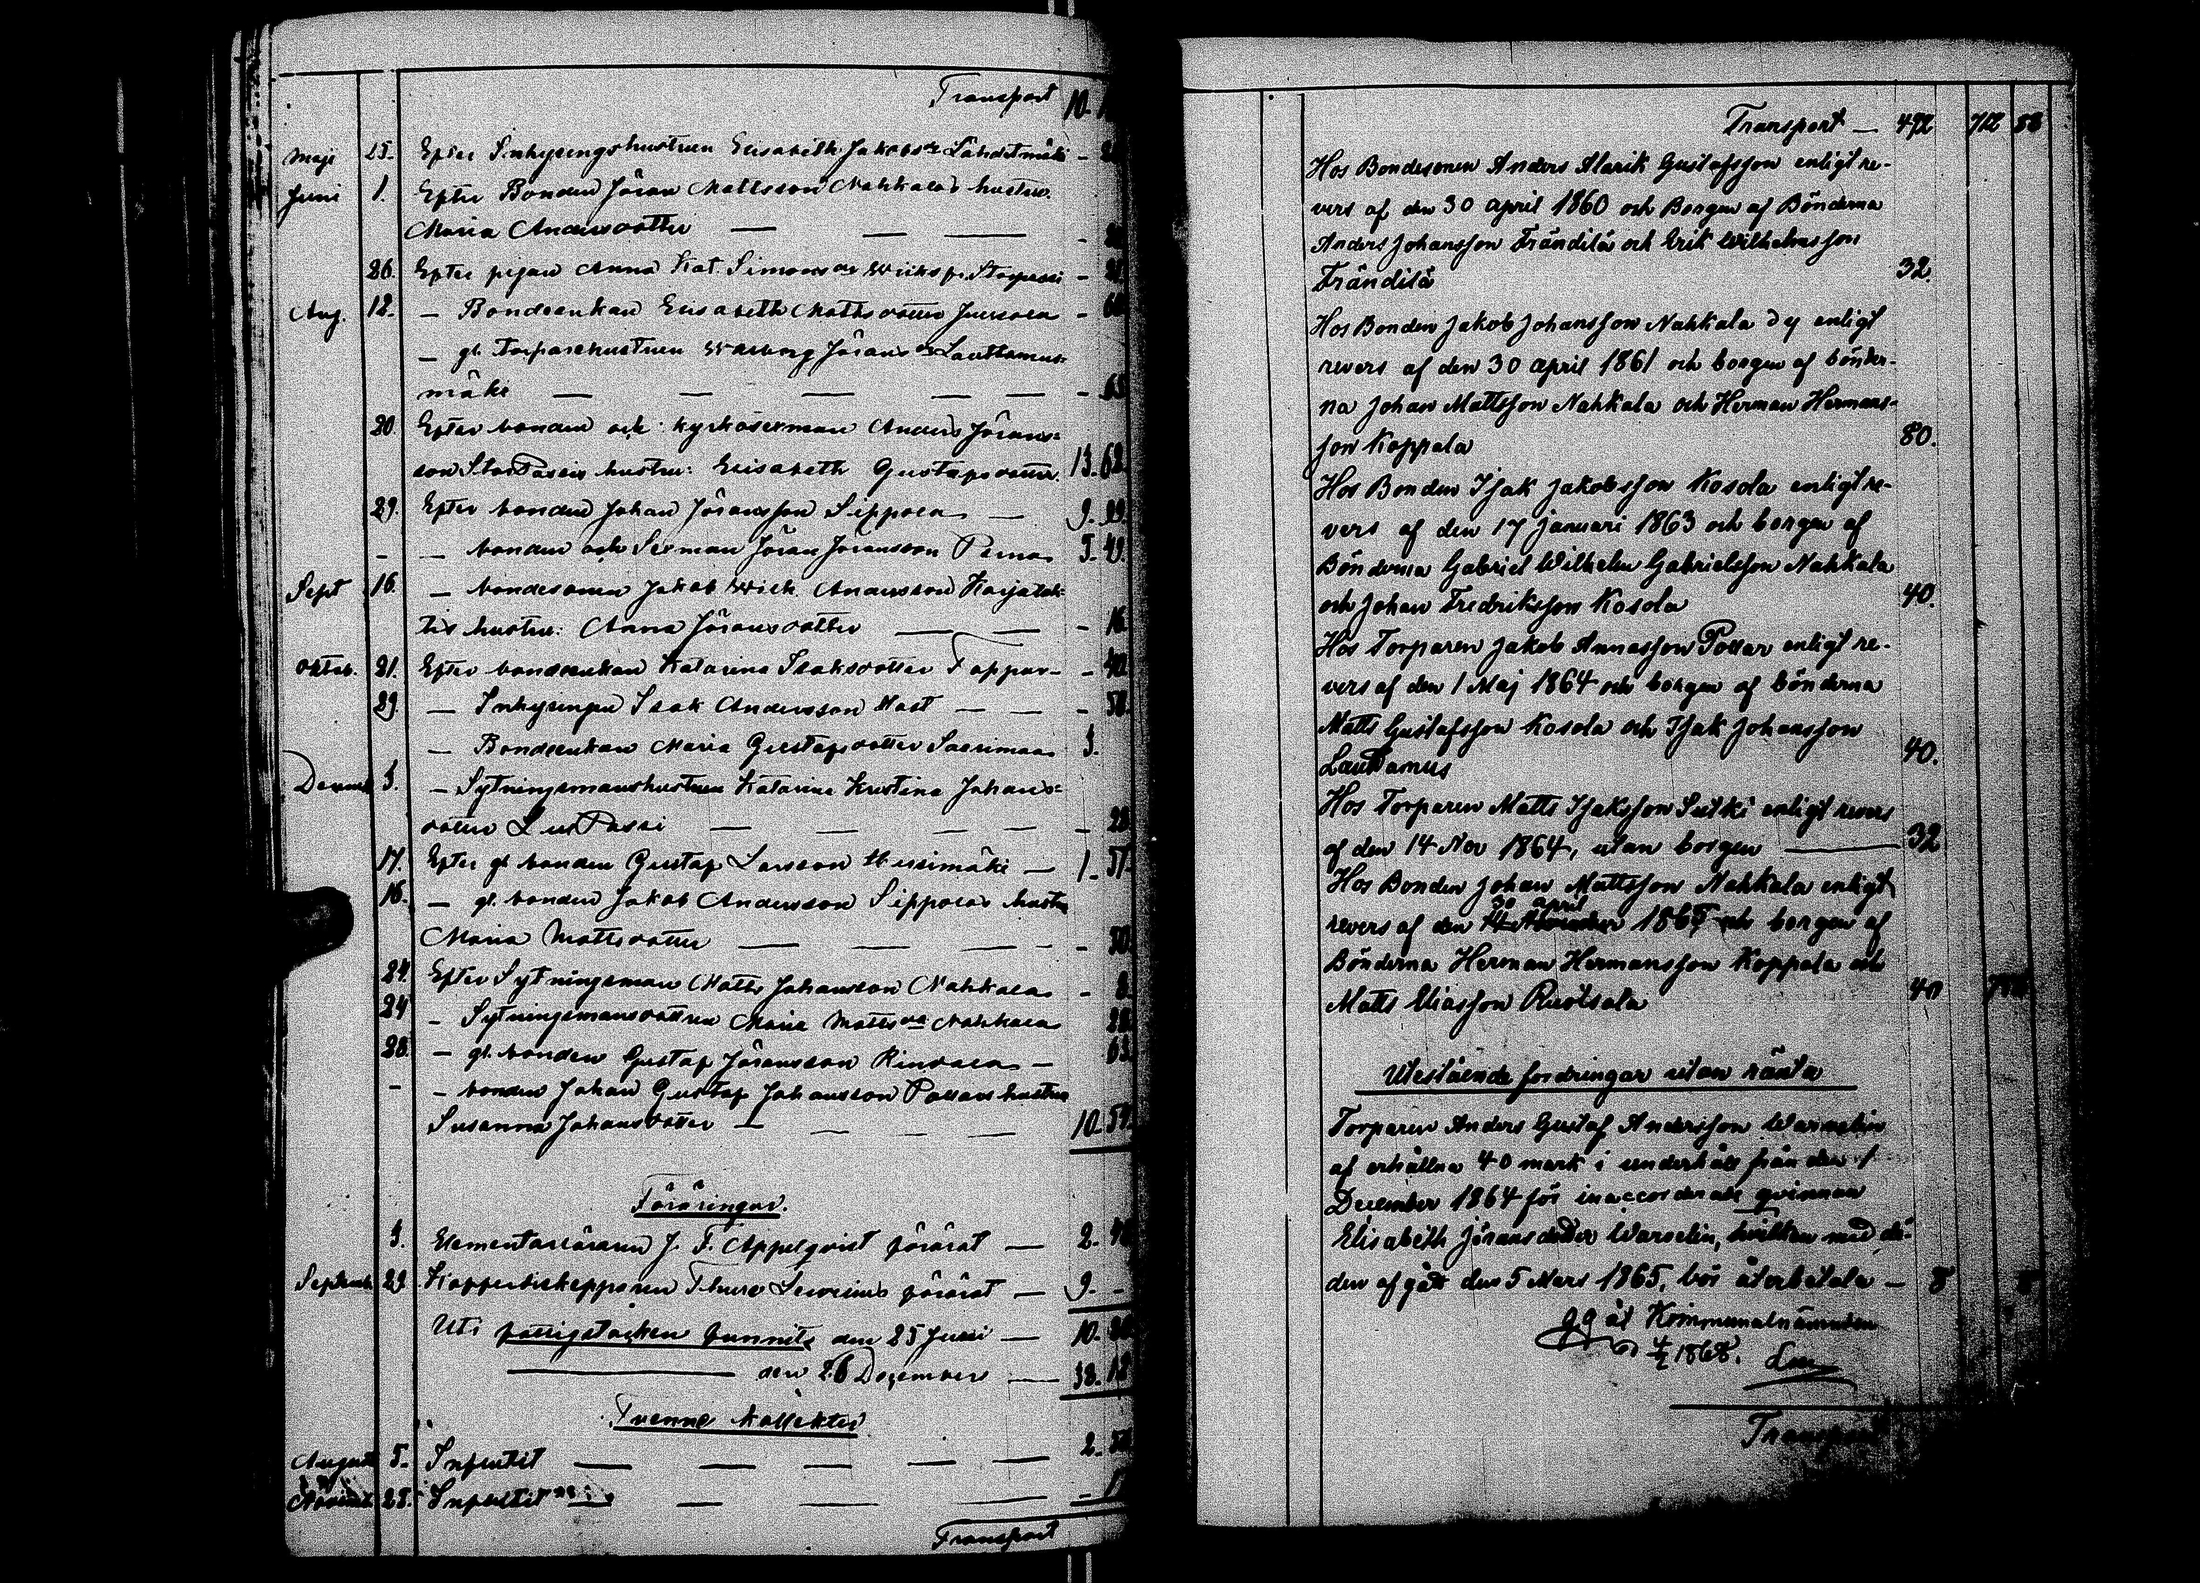 Transport 10.
Maji 25. Efter Inhysingshustrun Elisabeth Jakobsdr Lähdetmäki -
Juni 1. Efter Bonden Jöran Mattsson Nahkalas hustru
Maria Andersdotter — — — -
26. Efter pigan Anna Kat. Simonsdr -
Aug. 12. — Bondeenkan Elisabeth Mattsdotter Jussila - 60
— gl. Torparehustrun Walborg Jöransdr Lauttamus-
mäki — — — — — - 65
20. Efter bonden och kyrkoserman Anders Jörans-
son StorPassis hustru: Elisabeth Gustafsdotter. 13. 62.
29. Efter bonden Johan Jöransson Sippola — 9. 29.
- — bonden och Serman Jöran Jöransson Perna 5. 49.
Sept 16. — bondesonen Jakob Wilh. Andersson Karjalah-
tis hustru: Anna Jöransdotter — — - 16.
Oktob. 21. Efter bondeenkan Katarina Isaksdotter - 40.
29. — Inhysingen Isak Andersson Kost — — - 58.
— Bondeenkan Maria Gustafsdotter Saarimaa 3.
Decemb 3. — Sytningsmanshustrun Katarina Kristina Johans-
dotter LillPassi — — — — - 20
17. Efter gl. bonden Gustaf Larsson Hissimäki — 1. 57.
16. — gl. bonden Jakob Andersson Sippolas hustru
Maria Mattsdotter — — — - - 50.
24. Efter Sytningsman Matts Johansson Nahkala - 8.
24 — Sytningsmansdottren Maria Mattsdr Nahkala 28.
28. — gl. bonden Gustaf Jöransson Rintala — 63.
- — bonden Johan Gustaf Johansson Passis hustru
Susanna Johansdotter — — — — 10. 57.
Föräringar.
3. Elementarläraren J. F. Appelqvist förärat — 2. 40
Septemb. 29. Kofferdiskepparen Thure Sevenius förärat — 9. -
Uti fattigstocken funnits den 25 Juni — 10. 26
— den 26 December — 38. 18
Tvenne kollekter
August 5. Influtit — — — — — 2.
Novemb. 28. Influtit — — — — -
Transport
Transport — 492 712 58
Hos Bondesonen Anders Alarik Gustafsson enligt re-
vers af den 30 april 1860 och Borgen af Bönderna
Anders Johansson Frändilä och Erik Wilhelmsson
Frändilä 32.
Hos Bonden Jakob Johansson Nahkala dy enligt
revers af den 30 april 1861 och borgen af bönder-
na Johan Mattsson Nahkala och Herman Hermans-
son Koppala 80.
Hos Bonden Isak Jakobsson Kosola enligt re-
vers af den 17 Januari 1863 och borgen af
Bönderna Gabriel Wilhelm Gabrielsson Nahkala
och Johan Fredriksson Kosola 40.
Hos Torparen Jakob Annasson Potlar enligt re-
vers af den 1 Maj 1864 och borgen af bönderna
Matts Gustafsson Kosola och Isak Johansson
Lauttamus 40.
Hos Torparen Matts Isaksson Sulki enligt revers
af den 14 Nov 1864, utan borgen — 32
Hos Bonden Johan Mattsson Nahkala enligt
30 april
revers af den 1865 och borgen af
Bönderna Herman Hermansson Koppala och
Matts Eliasson Ruotsala 40
Utestående fordringar utan ränta
Torparen Anders Gustaf Andersson Warselin
af erhållna 40 mark i underhåll från den 1
December 1864 för inaccorderade qvinnan
Elisabeth Jöransdotter Warselin, hvilken med dö-
den afgått den 5 Mars 1865, bör återbetala — 8 8
åt Kommunalnämnden
1868.
Transport